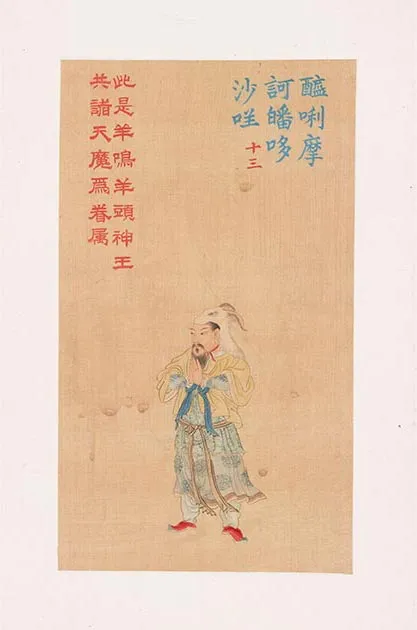 醯唎摩
訶皤哆
沙咩
十三
此是羊鳴羊頭神王
共諸天魔爲眷属